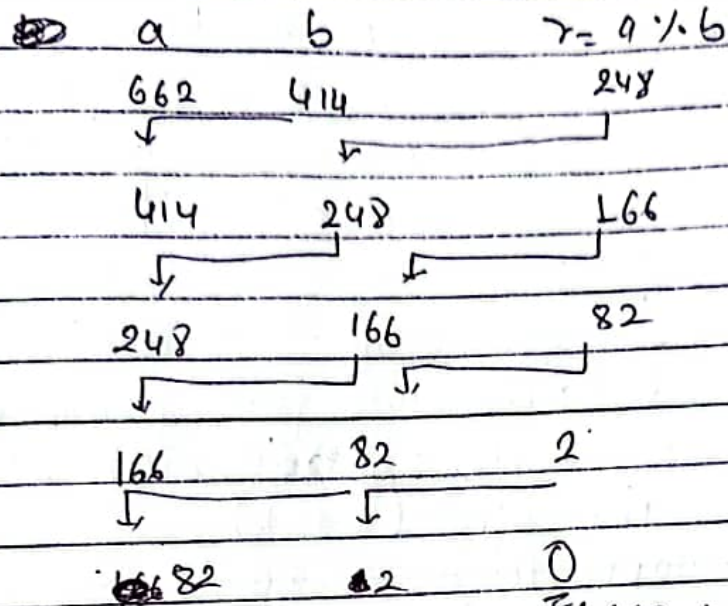 a b r = a % b
662 414 248
414 248 166
248 166 82
166 82 2
82 2 0